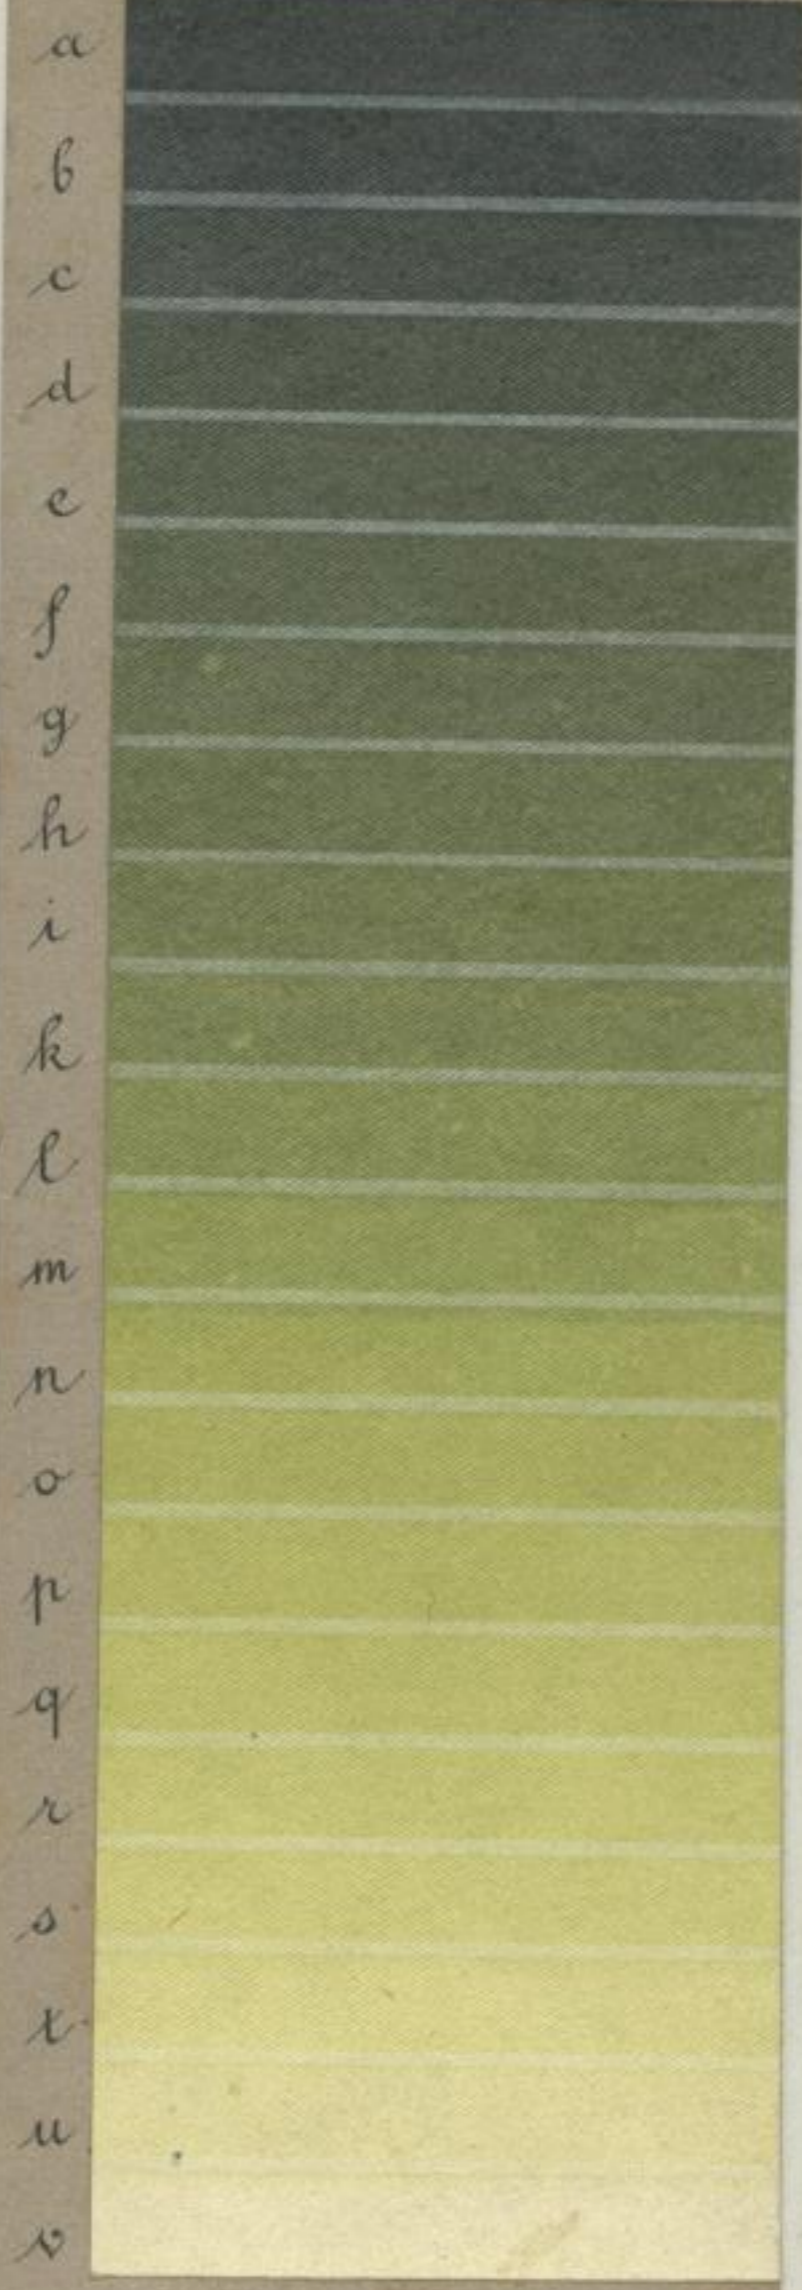 a
b
c
d
e
f
g
h
i
k
l
m
n
o
p
q
r
s
t
u
v